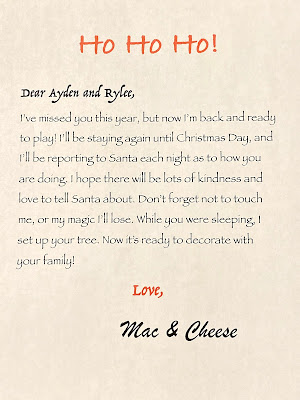 Ho Ho Ho!
Dear Ayden and Rylee,
I've missed you this year, but now I'm back and ready
to play! I'll be staying again until Christmas Day, and
I'll be reporting to Santa each night as to how you
are doing. I hope there will be lots of kindness and
love to tell Santa about. Don't forget not to touch
me, or my magic I'll lose. While you were sleeping, I
set up your tree. Now it's ready to decorate with
your family!
Love,
Mac & Cheese